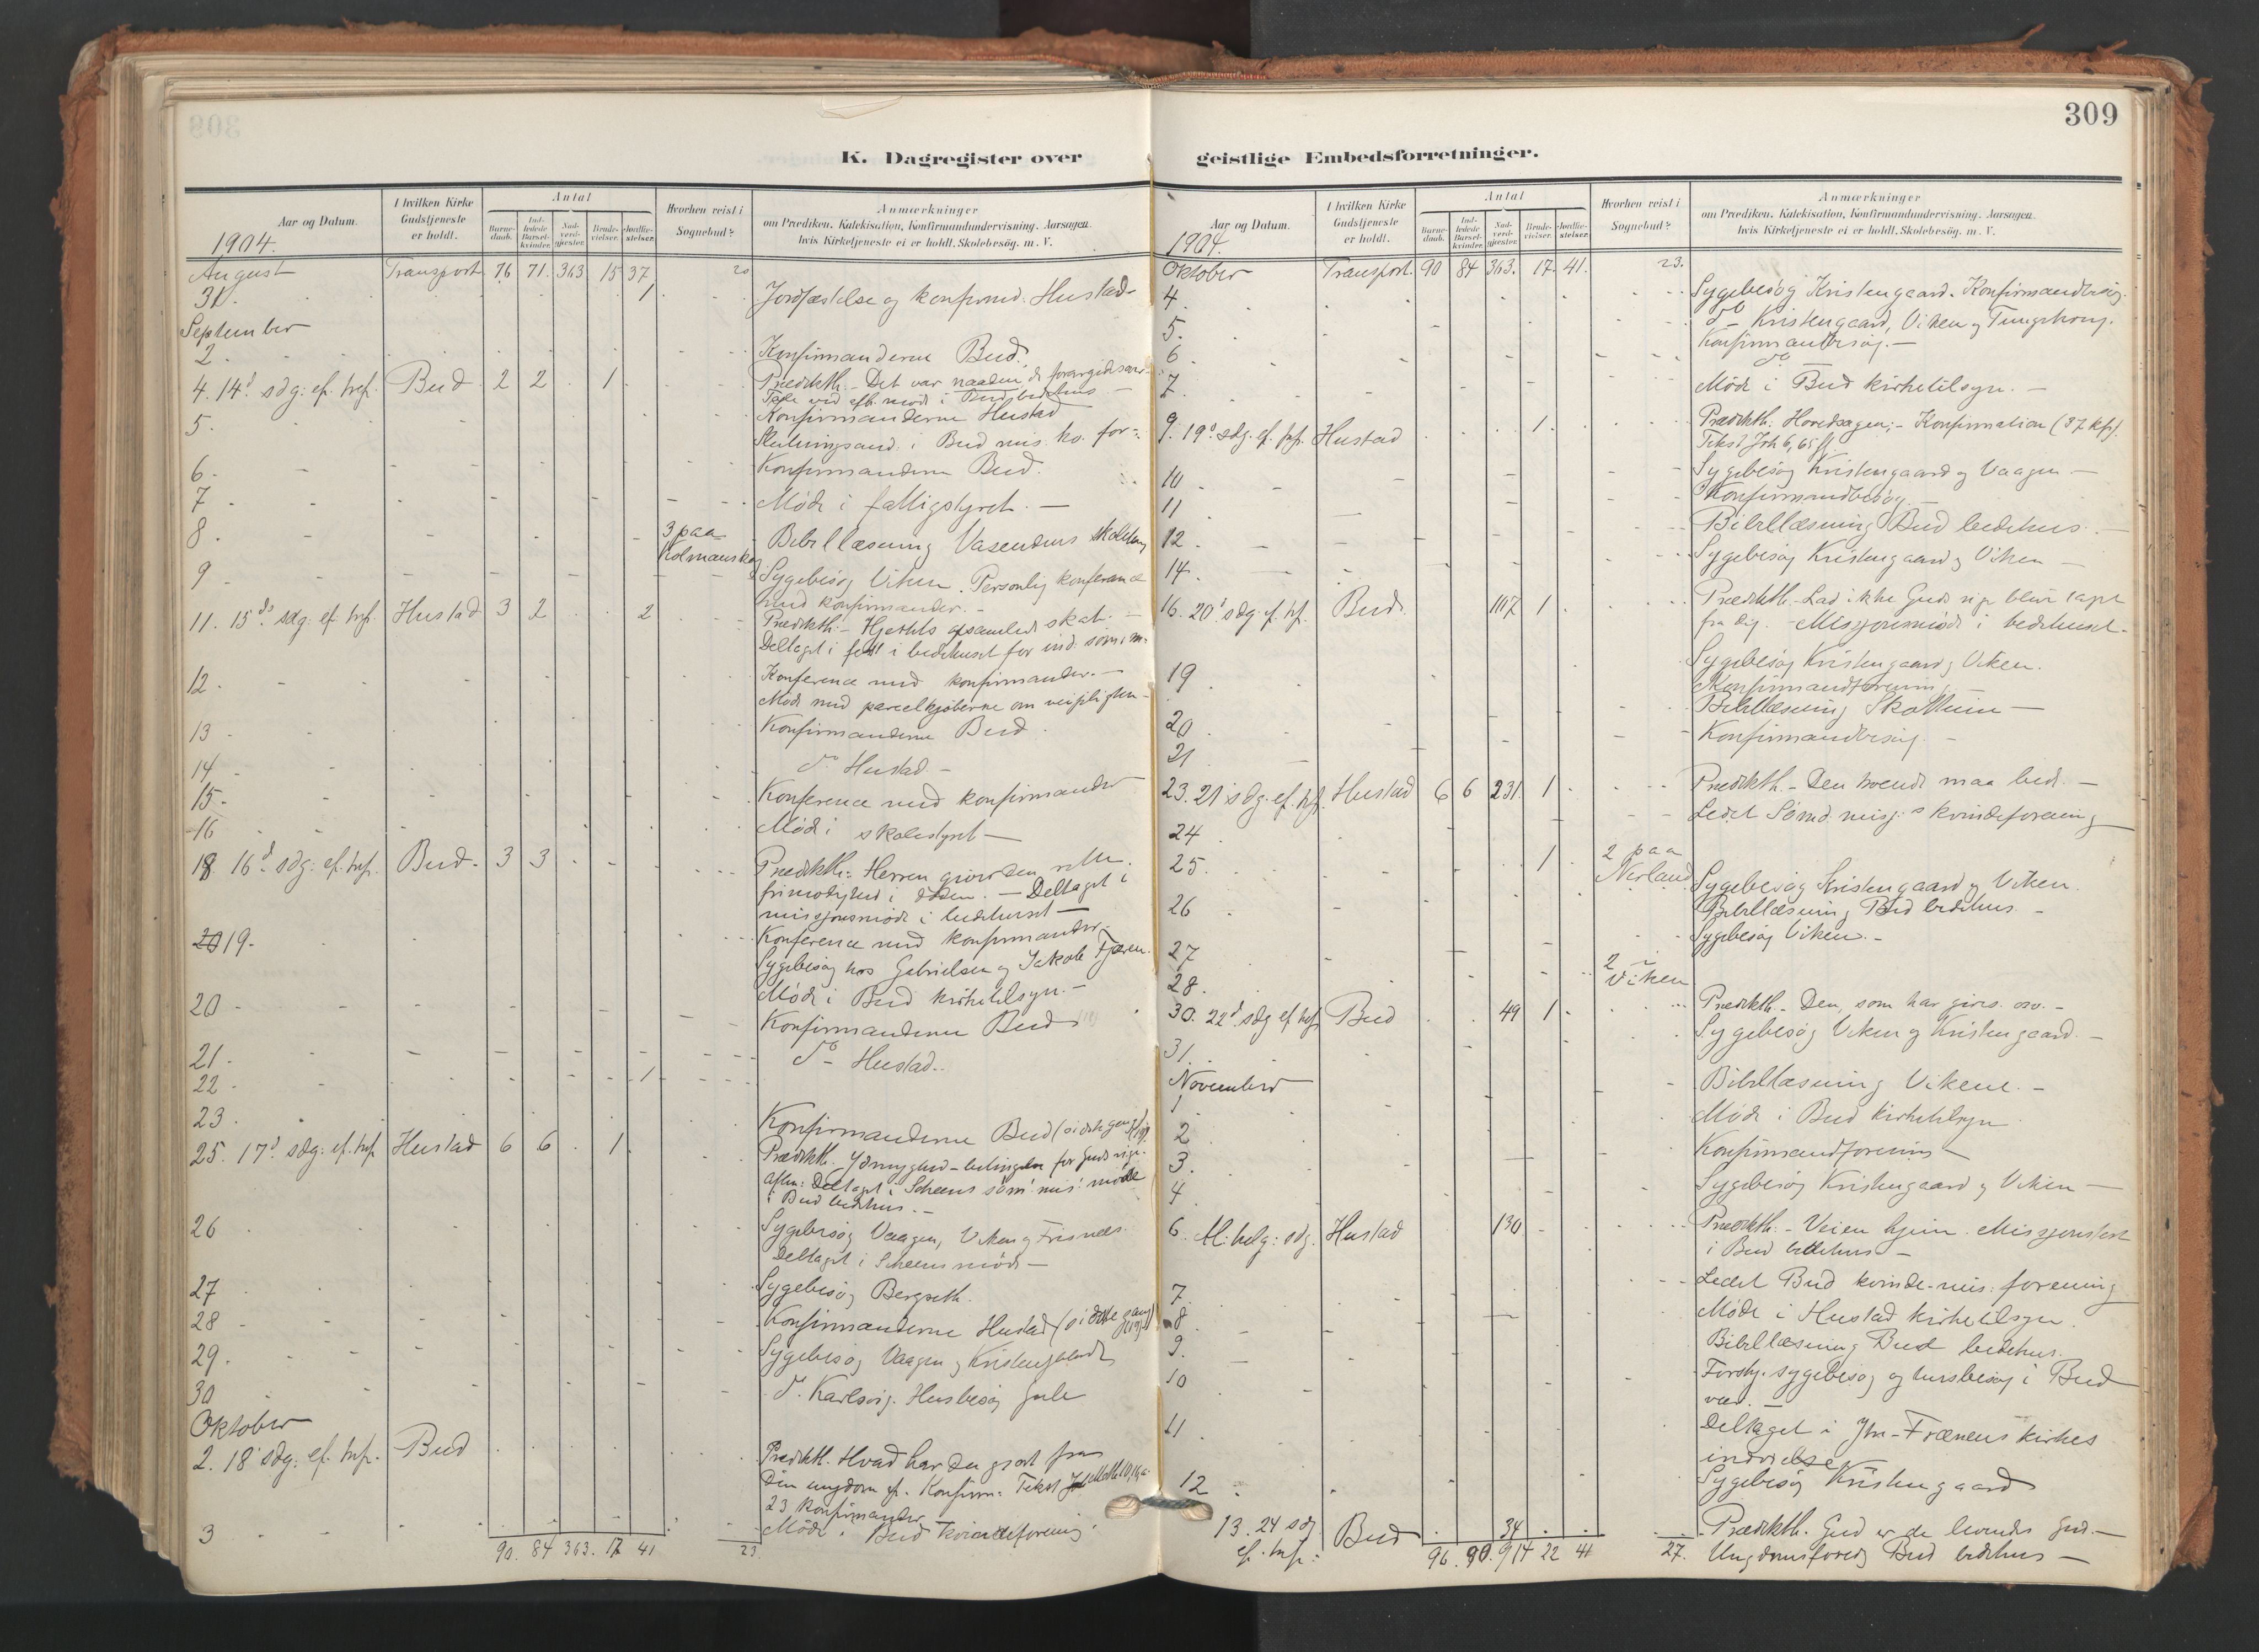 309
K. Dagregister over geistlige Embedsforretninger.
Aar og Datum.
I hvilken Kirke Gudstjeneste er holdt.
Antal
Barne-daab.
Ind-ledede Barsel-kvinder.
Nad-verd-gjester.
Brude-vielser.
Jordfæ-stelser.
Hvorhen reist i Sognebud?
Anmærkninger
om Prædiken, Katekisation, Konfirmandundervisning, Aarsagen,
hvis Kirketjeneste ei er holdt, Skolebesøg. m. V.
1904.
August Transport 76 71. 363 15 37 20
31. 1 Jordfæstelse og konfirmd. Hustad
September
2. Konfirmanderne Bud.
4. 14d sdg: ef. tref. Bud 2 2 1 Prædikth. - Det var naaden de forargedes over
i Bud bedehus
5. Konfirmanderne Hustad
i Bud mis. kv. for-
6. Konfirmanderne Bud.
7. Møde i fattigstyret. -
8. 3 paa Kolmanskog Bibellæsning Vasendens
9 Sygebesøg Viken. Personlig konferance
med konfirmander. -
11. 15ds sdg: ef. tref. Hustad 3 2 2 Prædikth. - Hjertets opsamlede skat. -
Deltaget i fest i bedehuset for ind. sømm:
12. Konference med konfirmander. -
Møde med parcelkjøberne om veipligten -
13 Konfirmanderne Bud.
14 do Hustad. -
15. Konference med konfirmander
16 Møde i skolestyret -
18 16d sdg: ef. tref. Bud. 3 3 Prædikth: Herren giver den rette
frimodighed i døden. - Deltaget i
missjonsmøde i bedehuset -
20 19. Konference med konfirmander.
Sygebesøg hos Gabrielsen og Jakob Fjæren.
20 Møde i Bud kirketilsyn. -
21. Konfirmanderne Bud
22. 1 do Hustad.
23.
Konfirmanderne Bud (sidste gang)
25. 17d sdg: ef. tref. Hustad 6 6 1 Prædikth. Ydmyghed - betingelse for Guds rige.
Aften: Deltaget i Scheens søm: mis: møde
i Bud bedehus. -
26 Sygebesøg Vaagen, Viken og Frisnes.
Deltaget i Scheens møde -
27 Sygebesøg Bergseth.
28 Konfirmanderne Hustad (sidste gang)
29. Sygebesøg Vaagen og Kristengaard
30 do Karlsvig. Husbesøg Gule
Oktober
2. 18d sdg: ef. tref. Bud Prædikth. Hvad har du gjort fra
Din ungdom ef. Konfirm: Tekst
23 konfirmander
3 Møde i Bud kvindeforening.
90. 84 363. 17 41 23.
1904.
Oktober Transport. 90 84 363. 17. 41. 23.
4. Sygebesøg Kristengaard. Konfirmandbesøg.
5. do - Kristengaard, Viken og Tungehaug.
6 Konfirmandbesøg. -
do
7. Møde i Bud kirketilsyn. -
9. 19d sdg. ef. tref. Hustad 1. Prædikth. Hovedsagen; - Konfirmation (37 kfr).
Tekst Joh 6, 65 ff
10 Sygebesøg Kristengaard og Vaagen -
11 Konfirmandbesøg -
12 Bibellæsning Bud bedehus. -
14. Sygebesøg Kristengaard og Viken -
16. 20d sdg ef. tref. Bud. 107 1 Prædikth. - Lad ikke Guds rige blive taget
fra dig. - Missjonsmøde i bedehuset -
19 Sygebesøg Kristengaard og Viken.
Konfirmandforening
20 Bibellæsning Skottheim -
21 Konfirmandbesøg. -
23. 21d sdg. ef. tref. Hustad 6 6 231. 1 Prædikth. - Den troende maa bede. -
24 Ledet Sømd. misj: s kvindeforening
25. 1 2 paa Nerland
26 Sygebesøg Kristengaard og Viken.
Bibellæsning Bud bedehus -
27 Sygebesøg Viken. -
28. 2 i Viken
30. 22d sdg ef. tref. Bud 49 1 Prædikth. - Den, som har gives osv. -
31. Sygebesøg Viken og Kristengaard. -
November
1 Bibellæsning Vikene. -
2 Møde i Bud kirketilsyn
3. Konfirmandforening
4 Sygebesøg Kristengaard og Viken -
6. Al: helg: sdg. Hustad 130 Prædikth. - Veien hjem. Missjonsfest
i Bud bedehus -
7. Ledet Bud kvinde-mis: forening
8 Møde i Hustad kirketilsyn.
9. Bibellæsning Bud bedehus.
10 Forskj. sygebesøg og husbesøg i Bud
vær. -
11 Deltaget i Ytre-Frænens kirkes
indvielse
12 Sygebesøg Kristengaard
13. 24 sdg ef. tref: Bud 34 Prædikth. Gud er de levendes Gud. -
Ungdomsforeng Bud bedehus -
96. 90. 914 22 41 27.